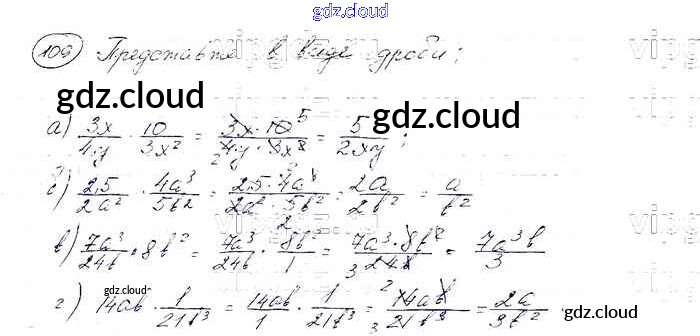 gdz.cloud
109 Представьте в виде дроби:
gdz.cloud
gdz.cloud
а) 3x/4y · 10/3x² = 3x·10/4y·3x² = 5/2xy;
б) 2,5/2a² · 4a³/5b² = 2,5·4a³/2a²·5b² = 2a/2b² = a/b²
в) 7a³/24b · 8b² = 7a³/24b · 8b²/1 = 7a³·8b²/24b = 7a³b/3
gdz.cloud
г) 14ab · 1/21b³ = 14ab/1 · 1/21b³ = 14ab/21b³ = 2a/3b²
gdz.cloud